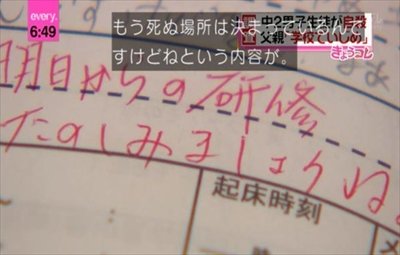 every.
6:49
中2男子生徒が自殺
父親"学校でいじめ"
きょうコレ
もう死ぬ場所は決まっているんで
すけどねという内容が。
明日からの研修
たのしみましょうね。
起床時刻